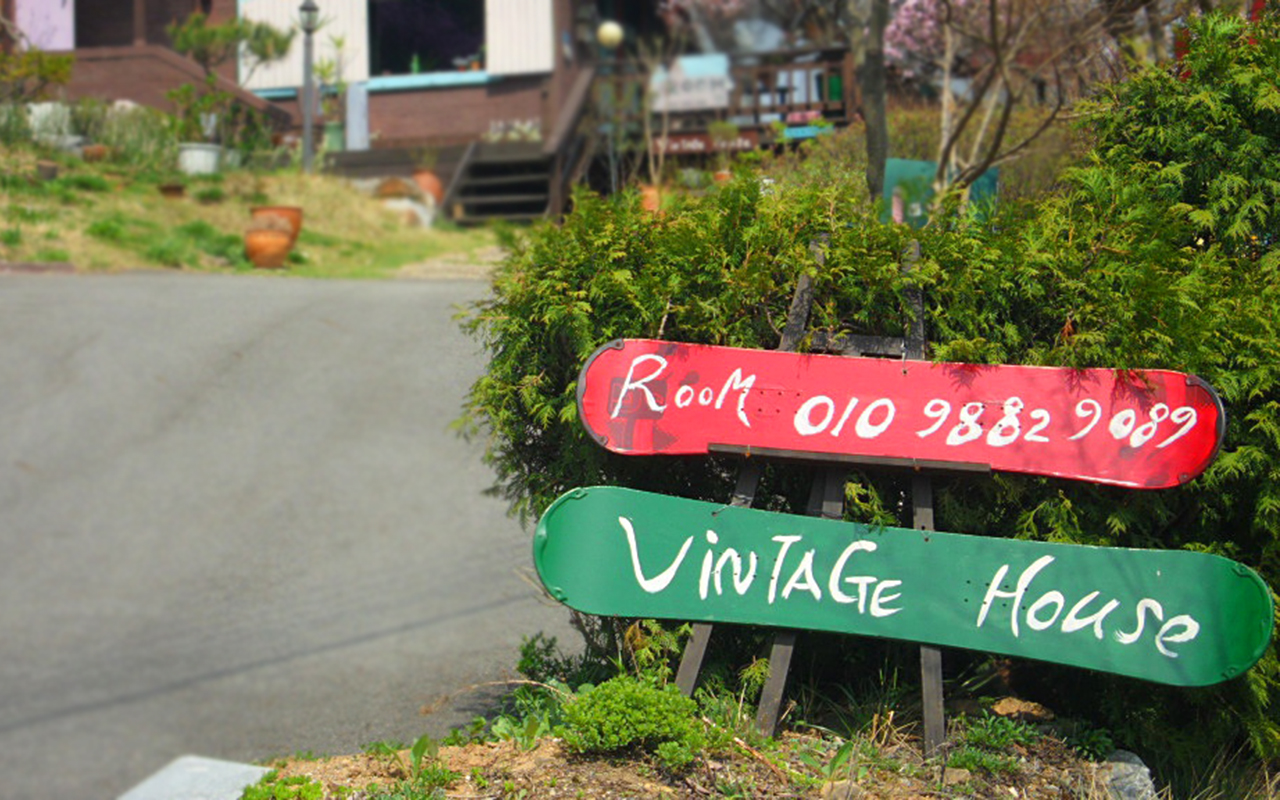 RooM 010 9882 9089
ViNTAGe House